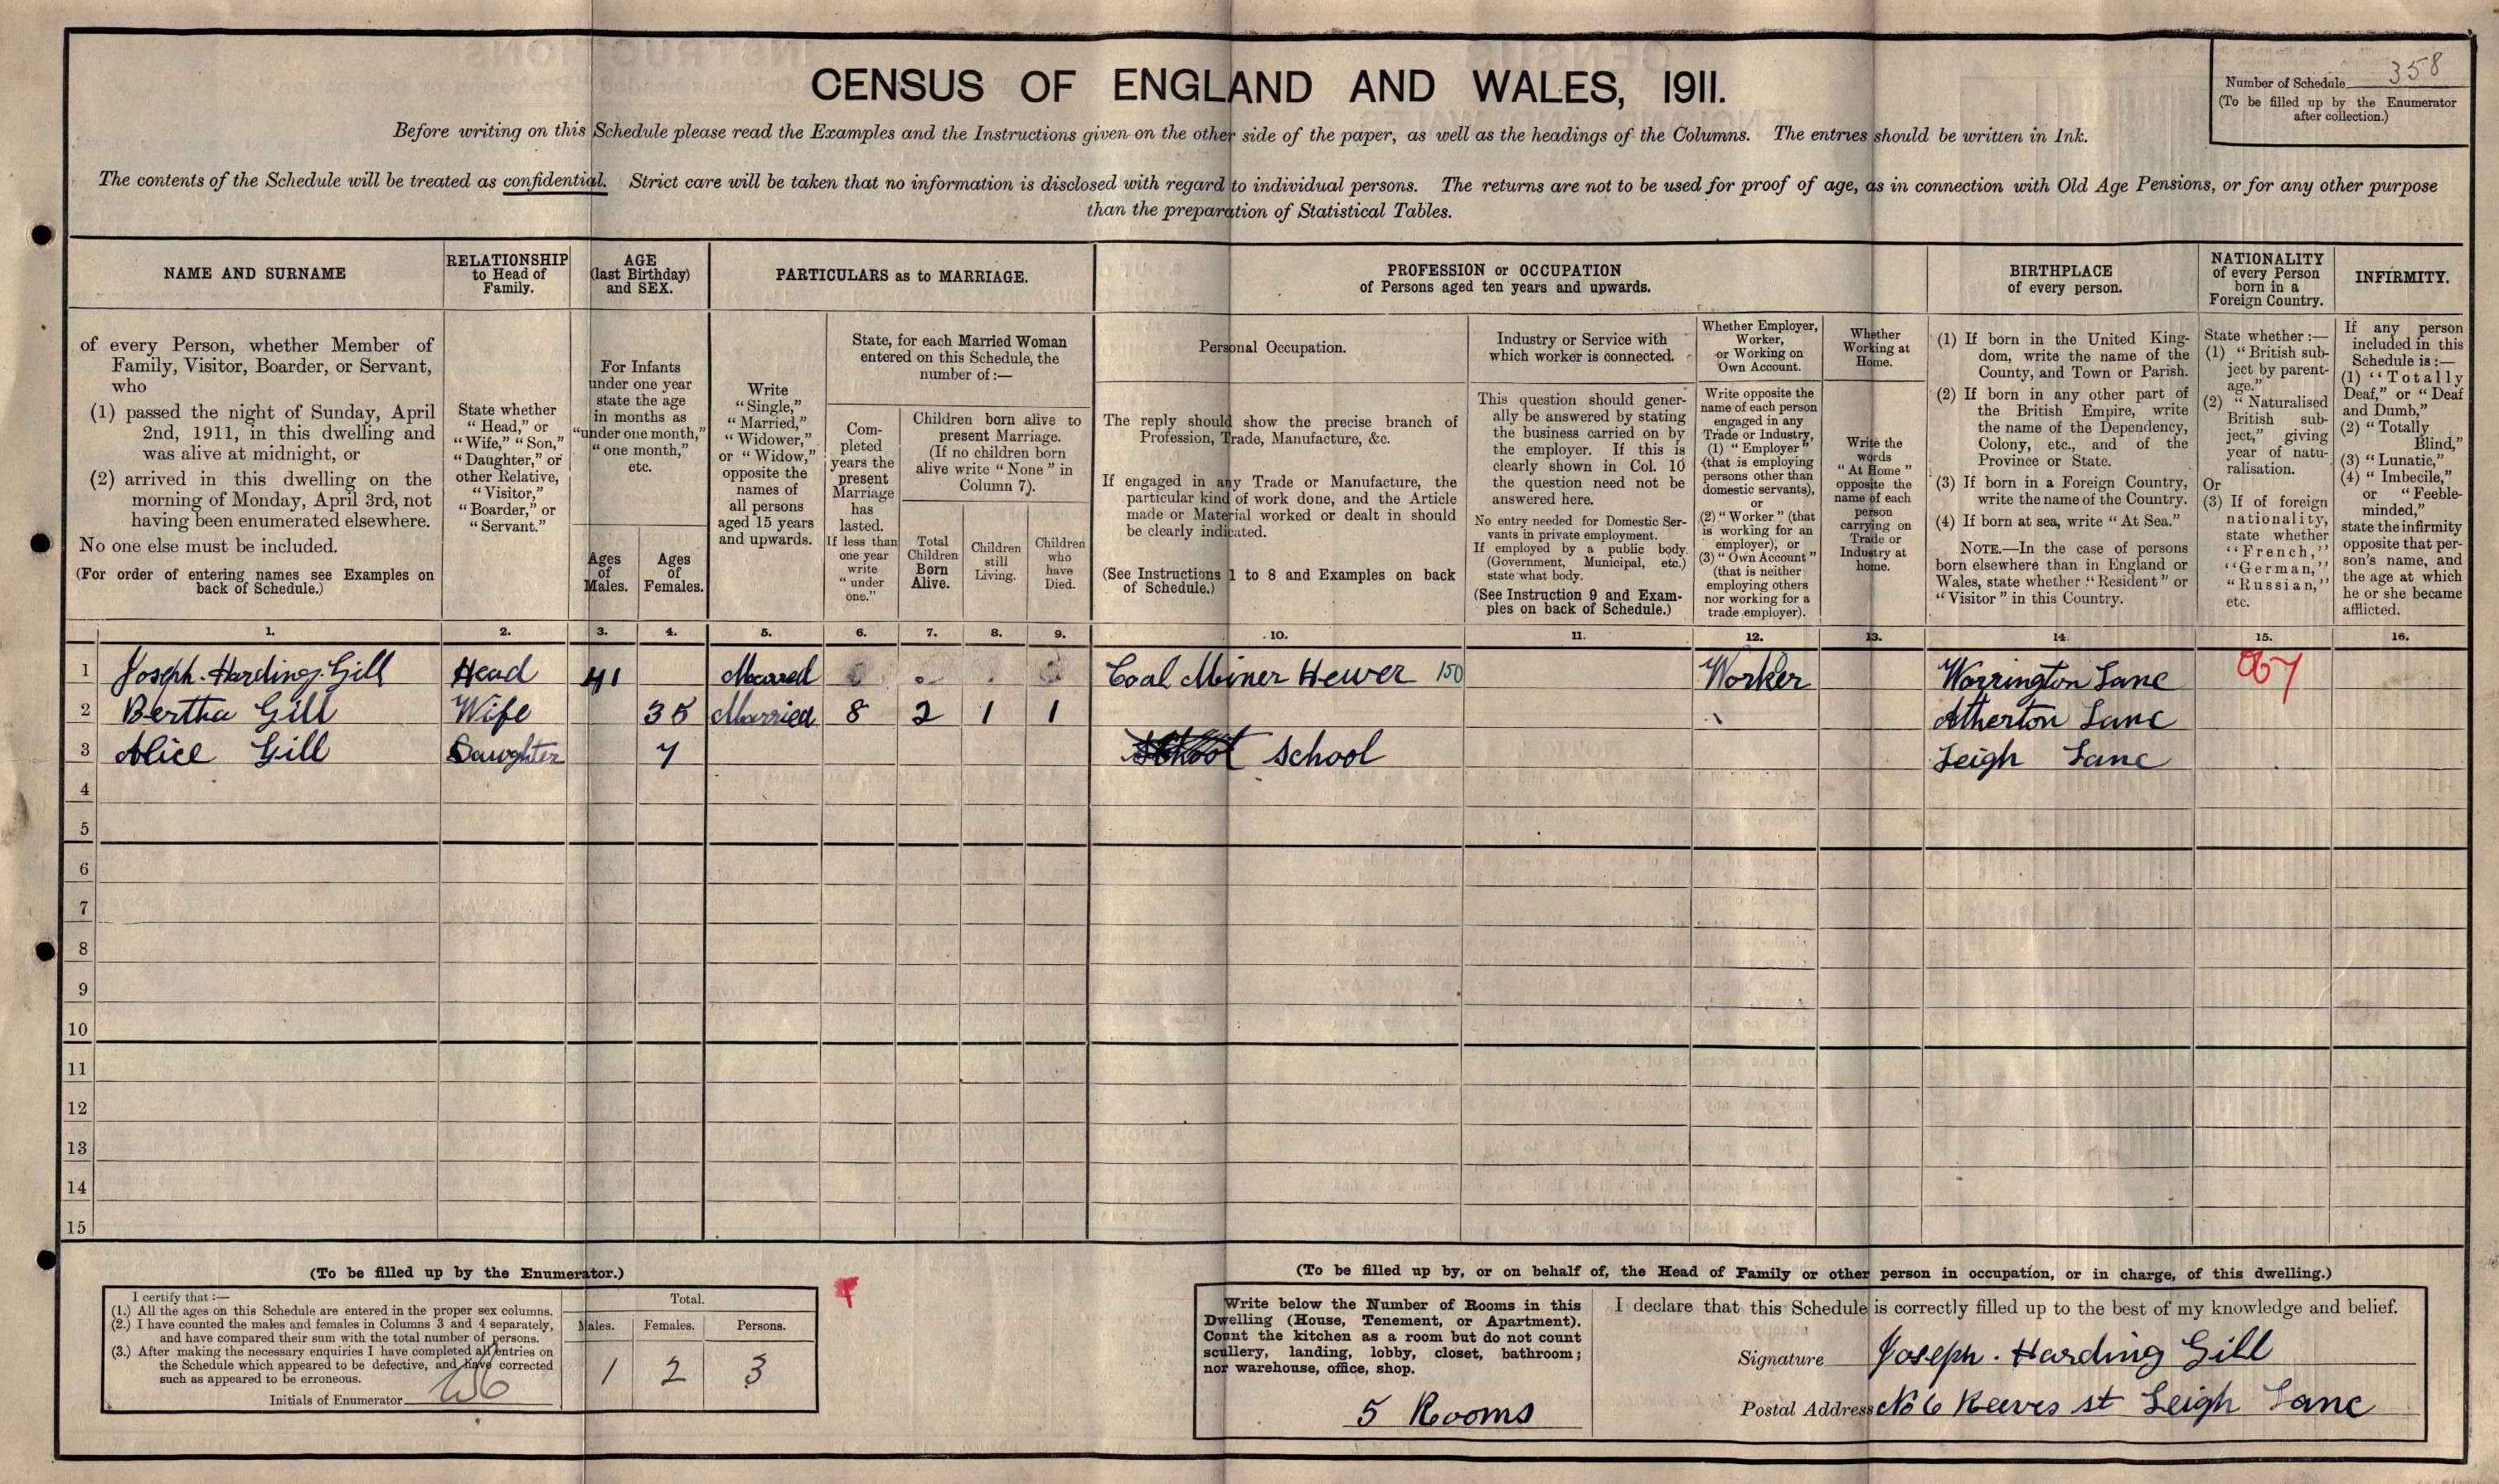 CENSUS OF ENGLAND AND WALES, 1911.
Number of Schedule 358
(To be filled up by the Enumerator
after collection.)
Before writing on this Schedule please read the Examples and the Instructions given on the other side of the paper, as well as the headings of the Columns. The entries should be written in Ink.
The contents of the Schedule will be treated as confidential. Strict care will be taken that no information is disclosed with regard to individual persons. The returns are not to be used for proof of age, as in connection with Old Age Pensions, or for any other purpose
than the preparation of Statistical Tables.
NAME AND SURNAME
of every Person, whether Member of
Family, Visitor, Boarder, or Servant,
who
(1) passed the night of Sunday, April
2nd, 1911, in this dwelling and
was alive at midnight, or
(2) arrived in this dwelling on the
morning of Monday, April 3rd, not
having been enumerated elsewhere.
No one else must be included.
(For order of entering names see Examples on
back of Schedule.)
RELATIONSHIP
to Head of
Family.
State whether
"Head," or
"Wife," "Son,"
"Daughter," or
other Relative,
"Visitor,"
"Boarder," or
"Servant."
AGE
(last Birthday)
and SEX.
For Infants
under one year
state the age
in months as
"under one month,"
"one month,"
etc.
Ages
of
Males.
Ages
of
Females.
PARTICULARS as to MARRIAGE.
Write
"Single,"
"Married,"
"Widower,"
or "Widow,"
opposite the
names of
all persons
aged 15 years
and upwards.
State, for each Married Woman
entered on this Schedule, the
number of:—
Com-
pleted
years the
present
Marriage
has
lasted.
If less than
one year
write
"under
one."
Children born alive to
present Marriage.
(If no children born
alive write "None" in
Column 7).
Total
Children
Born
Alive.
Children
still
Living.
Children
who
have
Died.
PROFESSION or OCCUPATION
of Persons aged ten years and upwards.
Personal Occupation.
The reply should show the precise branch of
Profession, Trade, Manufacture, &c.
If engaged in any Trade or Manufacture, the
particular kind of work done, and the Article
made or Material worked or dealt in should
be clearly indicated.
(See Instructions 1 to 8 and Examples on back
of Schedule.)
Industry or Service with
which worker is connected.
This question should gener-
ally be answered by stating
the business carried on by
the employer. If this is
clearly shown in Col. 10
the question need not be
answered here.
No entry needed for Domestic Ser-
vants in private employment.
If employed by a public body
(Government, Municipal, etc.)
state what body.
(See Instruction 9 and Exam-
ples on back of Schedule.)
Whether Employer,
Worker,
or Working on
Own Account.
Write opposite the
name of each person
engaged in any
Trade or Industry,
(1) "Employer"
(that is employing
persons other than
domestic servants),
or
(2) "Worker" (that
is working for an
employer), or
(3) "Own Account"
(that is neither
employing others
nor working for a
trade employer).
Whether
Working at
Home.
Write the
words
"At Home"
opposite the
name of each
person
carrying on
Trade or
Industry at
home.
BIRTHPLACE
of every person.
(1) If born in the United King-
dom, write the name of the
County, and Town or Parish.
(2) If born in any other part of
the British Empire, write
the name of the Dependency,
Colony, etc., and of the
Province or State.
(3) If born in a Foreign Country,
write the name of the Country.
(4) If born at sea, write "At Sea."
NOTE.—In the case of persons
born elsewhere than in England or
Wales, state whether "Resident" or
"Visitor" in this Country.
NATIONALITY
of every Person
born in a
Foreign Country.
State whether:—
(1) "British sub-
ject by parent-
age."
(2) "Naturalised
British sub-
ject," giving
year of natu-
ralisation.
Or
(3) If of foreign
nationality,
state whether
"French,"
"German,"
"Russian,"
etc.
INFIRMITY.
If any person
included in this
Schedule is:—
(1) "Totally
Deaf," or "Deaf
and Dumb,"
(2) "Totally
Blind,"
(3) "Lunatic,"
(4) "Imbecile,"
or "Feeble-
minded,"
state the infirmity
opposite that per-
son's name, and
the age at which
he or she became
afflicted.
1. 2. 3. 4. 5. 6. 7. 8. 9. 10. 11. 12. 13. 14. 15. 16.
1 Joseph. Harding. Gill Head 41 Married Coal Miner Hewer 150 Worker Warrington Lanc 067
2 Bertha Gill Wife 35 Married 8 2 1 1 Atherton Lanc
3 Alice Gill Daughter 7 School Leigh Lanc
4
5
6
7
8
9
10
11
12
13
14
15
(To be filled up by the Enumerator.)
I certify that:—
(1.) All the ages on this Schedule are entered in the proper sex columns.
(2.) I have counted the males and females in Columns 3 and 4 separately,
and have compared their sum with the total number of persons.
(3.) After making the necessary enquiries I have completed all entries on
the Schedule which appeared to be defective, and have corrected
such as appeared to be erroneous.
Initials of Enumerator
Total.
Males. Females. Persons.
1 2 3
(To be filled up by, or on behalf of, the Head of Family or other person in occupation, or in charge, of this dwelling.)
Write below the Number of Rooms in this
Dwelling (House, Tenement, or Apartment).
Count the kitchen as a room but do not count
scullery, landing, lobby, closet, bathroom;
nor warehouse, office, shop.
5 Rooms
I declare that this Schedule is correctly filled up to the best of my knowledge and belief.
Signature Joseph. Harding Gill
Postal Address No 6 Reeves st Leigh Lanc